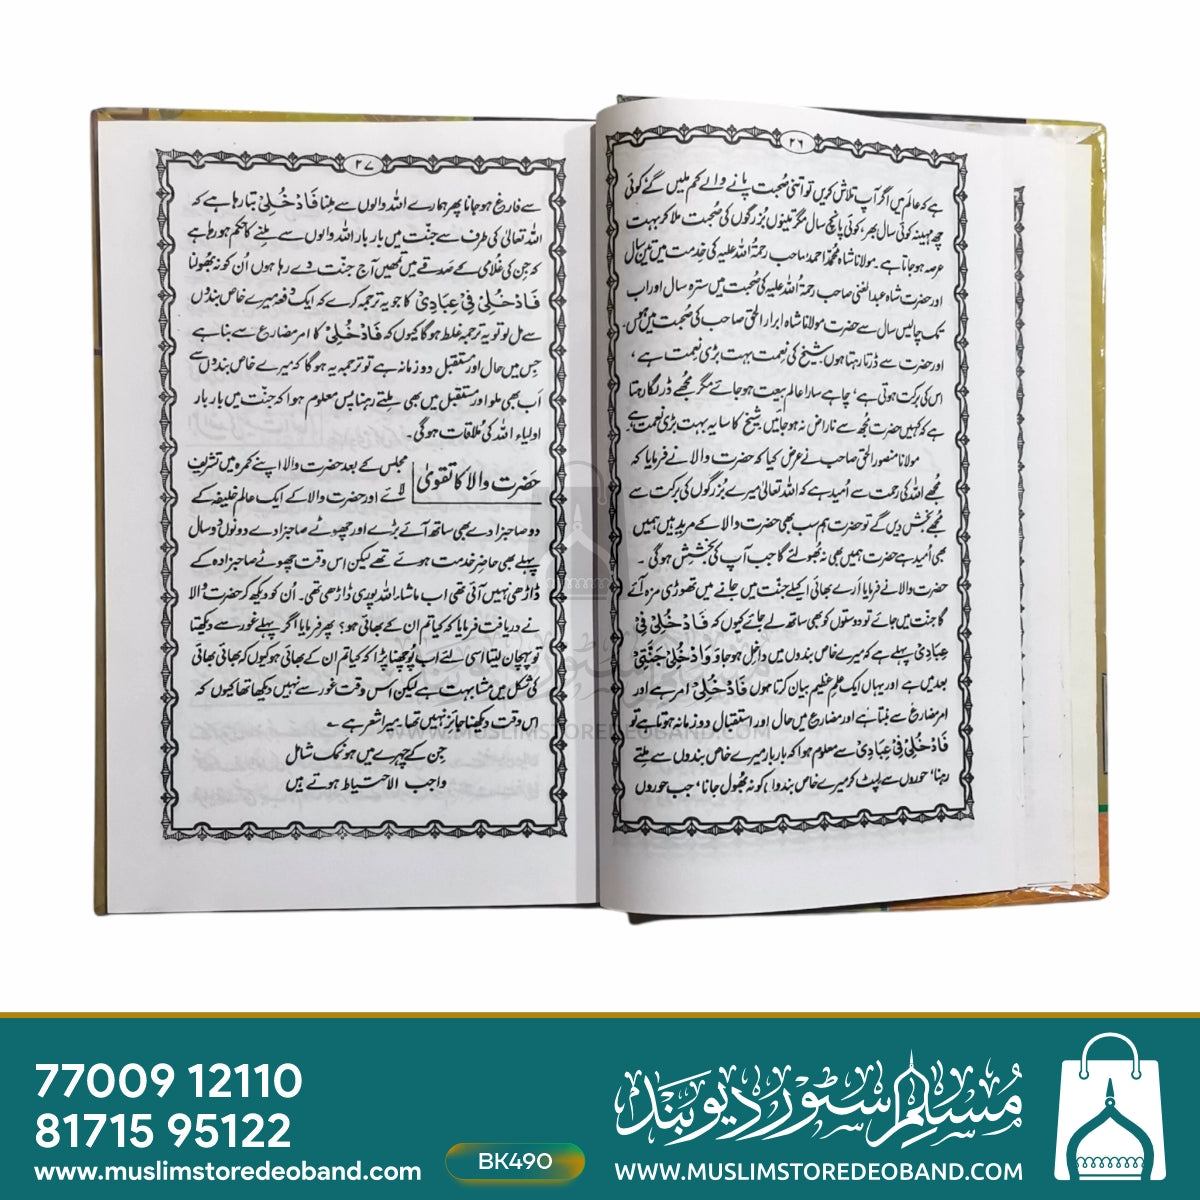 ۲۶
ہے کہ عالَم میں اگر آپ تلاش کریں تو اتنی صُحبت پانے والے کم ملیں گے، کوئی
چھ مہینہ کوئی سال بھر، کوئی پانچ سال مگر تینوں بُزرگوں کی صُحبت ملا کر بہت
عرصہ ہوجاتا ہے۔ مولانا شاہ محمد احمد صاحب رحمۃ اللہ علیہ کی خدمت میں تین سال
اور حضرت شاہ عبدالغنی صاحب رحمۃ اللہ علیہ کی صُحبت میں سترہ سال اور اب
تک چالیس سال سے حضرت مولانا شاہ ابرار الحق صاحب کی صُحبت میں ہوں۔
اور حضرت سے ڈرتا رہتا ہوں شیخ کی نعمت بہت بڑی نعمت ہے،
اس کی برکت ہوتی ہے، چاہے سارا عالم بیعت ہوجائے مگر مجھے ڈر لگا رہتا
ہے کہ کہیں حضرت مجھ سے ناراض نہ ہوجائیں شیخ کا سایہ بہت بڑی نعمت ہے
مولانا منصور الحق صاحب نے عرض کیا کہ حضرت والا نے فرمایا کہ
مجھے اللہ کی رحمت سے اُمید ہے کہ اللہ تعالیٰ میرے بزرگوں کی برکت سے
مجھے بخش دیں گے تو حضرت ہم سب بھی حضرت والا کے مرید ہیں ہمیں
بھی اُمید ہے حضرت ہمیں بھی نہ بُھولئے گا جب آپ کی بخشش ہوگی۔
حضرت والا نے فرمایا ارے بھائی اکیلے جنّت میں جانے میں تھوڑی مزہ آئے
گا جنت میں جائے تو دوستوں کو بھی ساتھ لے جائے کیوں کہ فَادْخُلِیْ فِیْ
عِبَادِیْ پہلے ہے کہ میرے خاص بندوں میں داخل ہوجاؤ وَادْخُلِیْ جَنَّتِیْ
بعد میں ہے اور یہاں ایک علمِ عظیم بیان کرتا ہوں فَادْخُلِیْ امر ہے اور
امر مضارع سے بنتا ہے اور مضارع میں حال اور استقبال دو زمانہ ہوتا ہے تو
فَادْخُلِیْ فِیْ عِبَادِیْ سے معلوم ہوا کہ بار بار میرے خاص بندوں سے ملتے
رہنا، حوروں سے لپٹ کر میرے خاص بندوں کو نہ بُھول جانا، جب حوروں
۲۷
سے فارغ ہوجانا پھر ہمارے اللہ والوں سے ملنا فَادْخُلِیْ بتا رہا ہے کہ
اللہ تعالیٰ کی طرف سے جنّت میں بار بار اللہ والوں سے ملنے کا حکم ہو رہا ہے
کہ جن کی غُلامی کے صدقے میں تمہیں آج جنّت دے رہا ہوں اُن کو نہ بُھولنا
فَادْخُلِیْ فِیْ عِبَادِیْ کا جو یہ ترجمہ کرے کہ ایک دفعہ میرے خاص بندوں
سے مل لو تو یہ ترجمہ غلط ہوگا کیوں کہ فَادْخُلِیْ کا امر مضارع سے بنا ہے
جس میں حال اور مستقبل دو زمانہ ہے تو ترجمہ یہ ہوگا کہ میرے خاص بندوں سے
اَب بھی ملو اور مستقبل میں بھی ملتے رہنا پس معلوم ہوا کہ جنّت میں بار بار
اولیاء اللہ کی مُلاقات ہوگی۔
حَضرت والا کا تقویٰ
مجلس کے بعد حضرت والا اپنے کمرہ میں تشریف
لائے اور حضرت والا کے ایک عالم خلیفہ کے
دو صاحبزادے بھی ساتھ آئے بڑے اور چھوٹے صاحبزادے دونوں دو سال
پہلے بھی حاضر خدمت ہوئے تھے لیکن اس وقت چھوٹے صاحبزادہ کے
ڈاڑھی نہیں آئی تھی اب ماشاء اللہ پوری ڈاڑھی تھی۔ اُن کو دیکھ کر حضرت والا
نے دریافت فرمایا کہ کیا تم ان کے بھائی ہو؟ پھر فرمایا اگر پہلے غور سے دیکھتا
تو پہچان لیتا اسی لئے اب پُوچھنا پڑا کہ کیا تم ان کے بھائی ہو کیوں کہ بھائی بھائی
کی شکل میں مشابہت ہے لیکن اس وقت غور سے نہیں دیکھا تھا کیوں کہ
اس وقت دیکھنا جائز نہیں تھا۔ میرا شعر ہے ؎
جن کے چہرے میں ہو نمک شامل
واجب الاحتیاط ہوتے ہیں
مسلم سٹور دیوبند
WWW.MUSLIMSTOREDEOBAND.COM
77009 12110
81715 95122
www.muslimstoredeoband.com
BK490
مسلم سٹور دیوبند
WWW.MUSLIMSTOREDEOBAND.COM